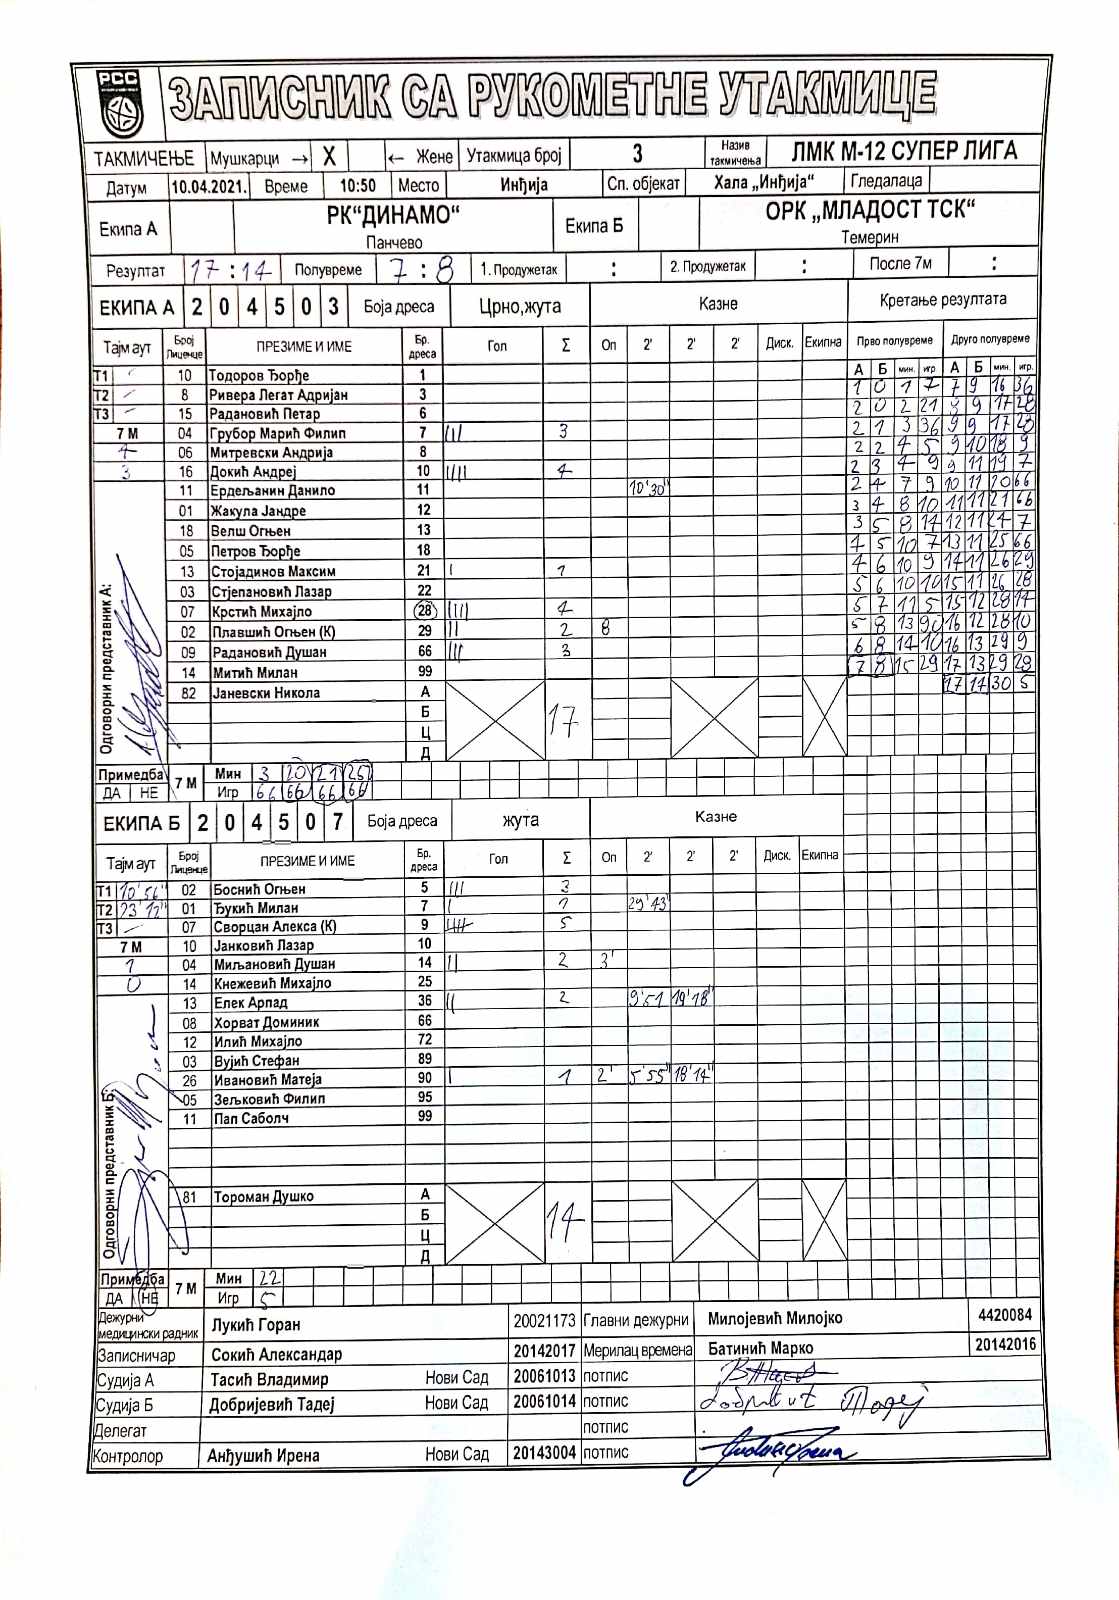 РСС
ЗАПИСНИК СА РУКОМЕТНЕ УТАКМИЦЕ
ТАКМИЧЕЊЕ Мушкарци → X ← Жене Утакмица број 3 Назив такмичења ЛМК М-12 СУПЕР ЛИГА
Датум 10.04.2021. Време 10:50 Место Инђија Сп. објекат Хала „Инђија“ Гледалаца
Екипа А РК“ДИНАМО“ Панчево Екипа Б ОРК „МЛАДОСТ ТСК“ Темерин
Резултат 17 : 14 Полувреме 7 : 8 1. Продужетак : 2. Продужетак : После 7м :
ЕКИПА А 2 0 4 5 0 3 Боја дреса Црно,жута Казне Кретање резултата
Тајм аут Број Лиценце ПРЕЗИМЕ И ИМЕ Бр. дреса Гол Σ Оп 2' 2' 2' Диск. Екипна Прво полувреме Друго полувреме
А Б мин. игр А Б мин. игр.
Т1 10 Тодоров Ђорђе 1 1 0 1 7 7 9 16 36
Т2 8 Ривера Легат Адријан 3 2 0 2 21 8 9 17 28
Т3 15 Радановић Петар 6 2 1 3 36 9 9 17 28
7 М 04 Грубор Марић Филип 7 3 2 2 4 5 9 10 18 9
4 06 Митревски Андрија 8 2 3 4 9 9 11 19 7
3 16 Докић Андреј 10 4 2 4 7 9 10 11 20 66
11 Ердељанин Данило 11 10'30" 3 4 8 10 11 11 21 66
01 Жакула Јандре 12 3 5 8 14 12 11 24 7
18 Велш Огњен 13 4 5 10 7 13 11 25 66
05 Петров Ђорђе 18 4 6 10 9 14 11 26 29
13 Стојадинов Максим 21 1 5 6 10 10 15 11 26 28
03 Стјепановић Лазар 22 5 7 11 5 15 12 28 14
07 Крстић Михајло 28 4 5 8 13 90 16 12 28 10
02 Плавшић Огњен (К) 29 2 8 6 8 14 10 16 13 29 9
09 Радановић Душан 66 3 7 8 15 29 17 13 29 28
14 Митић Милан 99 17 14 30 5
82 Јаневски Никола А
Б 17
Ц
Д
Одговорни представник А:
Примедба 7 М Мин 3 20 21 25
ДА НЕ Игр 66 66 66 66
ЕКИПА Б 2 0 4 5 0 7 Боја дреса жута Казне
Тајм аут Број Лиценце ПРЕЗИМЕ И ИМЕ Бр. дреса Гол Σ Оп 2' 2' 2' Диск. Екипна
Т1 10'56" 02 Боснић Огњен 5 3
Т2 23'12" 01 Ђукић Милан 7 1 29'43"
Т3 07 Сворцан Алекса (К) 9 5
7 М 10 Јанковић Лазар 10
1 04 Миљановић Душан 14 2 3'
0 14 Кнежевић Михајло 25
13 Елек Арпад 36 2 9'51 19'18"
08 Хорват Доминик 66
12 Илић Михајло 72
03 Вујић Стефан 89
26 Ивановић Матеја 90 1 2' 5'55" 18'14"
05 Зељковић Филип 95
11 Пап Саболч 99
81 Тороман Душко А
Б 14
Ц
Д
Одговорни представник Б:
Примедба 7 М Мин 22
ДА НЕ Игр 5
Дежурни медицински радник Лукић Горан 20021173 Главни дежурни Милојевић Милојко 4420084
Записничар Сокић Александар 20142017 Мерилац времена Батинић Марко 20142016
Судија А Тасић Владимир Нови Сад 20061013 потпис
Судија Б Добријевић Тадеј Нови Сад 20061014 потпис
Делегат потпис
Контролор Анђушић Ирена Нови Сад 20143004 потпис